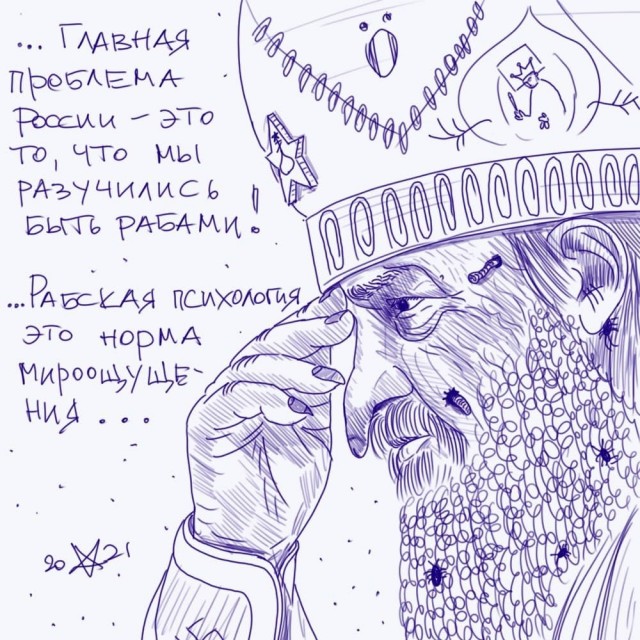 ... Главная
проблема
России – это
то, что мы
разучились
быть рабами!
...Рабская психология
это норма
мироощуще-
ния...
2021